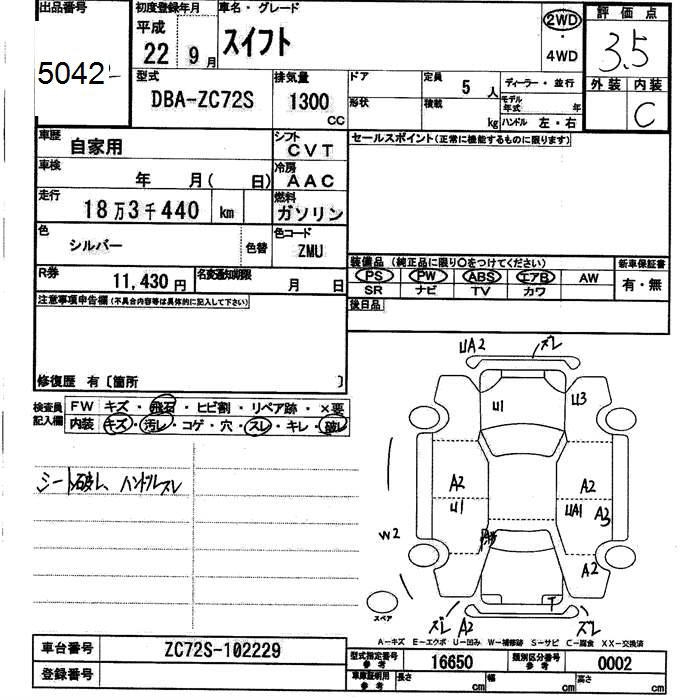 出品番号
5042
初度登録年月
平成
22 9 月
車名・グレード
スイフト
2WD
・
4WD
評価点
3.5
外装 内装
C
型式
DBA-ZC72S
排気量
1300
CC
ドア
形状
定員
5 人
積載
kg
ディーラー・並行
モデル年式 年
ハンドル 左・右
車歴
自家用
シフト
CVT
車検
年 月( 日)
冷房
AAC
走行
18万3千440 km
燃料
ガソリン
色
シルバー
色替
色コード
ZMU
R券
11,430 円
名変通知期限
月 日
セールスポイント(正常に機能するものに限ります)
装備品(純正品に限り○をつけてください)
PS PW ABS エアB AW
SR ナビ TV カワ
新車保証書
有・無
後日品
注意事項申告欄(不具合内容等は具体的に記入して下さい)
修復歴 有〔箇所 〕
検査員
記入欄
FW キズ・飛石・ヒビ割・リペア跡・×要
内装 キズ・汚レ・コゲ・穴・スレ・キレ・破レ
シート破レ、ハンドルスレ
UA2 ズレ
U1 U3
A2 A2
U1 UA1 A3
W2
A2
T
スペア
ズレ A2 ズレ
A-キズ E-エクボ U-凹み W-補修跡 S-サビ C-腐食 XX-交換済
車台番号 ZC72S-102229
登録番号
型式指定番号
参考
16650
類別区分番号
参考
0002
車庫証明用
参考
長さ cm 幅 cm 高さ cm